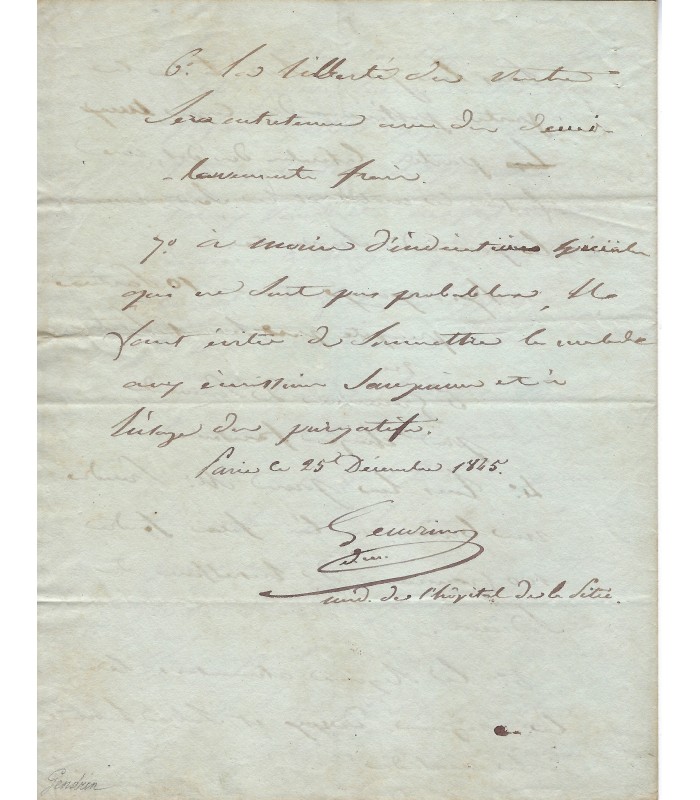 6° La liberté du ventre
sera entretenue avec des demi-
-lavements frais.
7° à moins d'indications spéciales
qui ne sont pas probables, il
faut éviter de soumettre le malade
aux émissions sanguines et à
l'usage des purgatifs.
Paris le 25 Décembre 1845.
Gendrin
d.m.
méd. de l'hôpital de la Pitié.
Gendrin